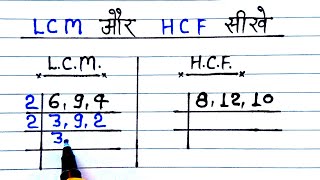 LCM और HCF सीखे
L.C.M.
2 6, 9, 4
2 3, 9, 2
3,
H.C.F.
8, 12, 10